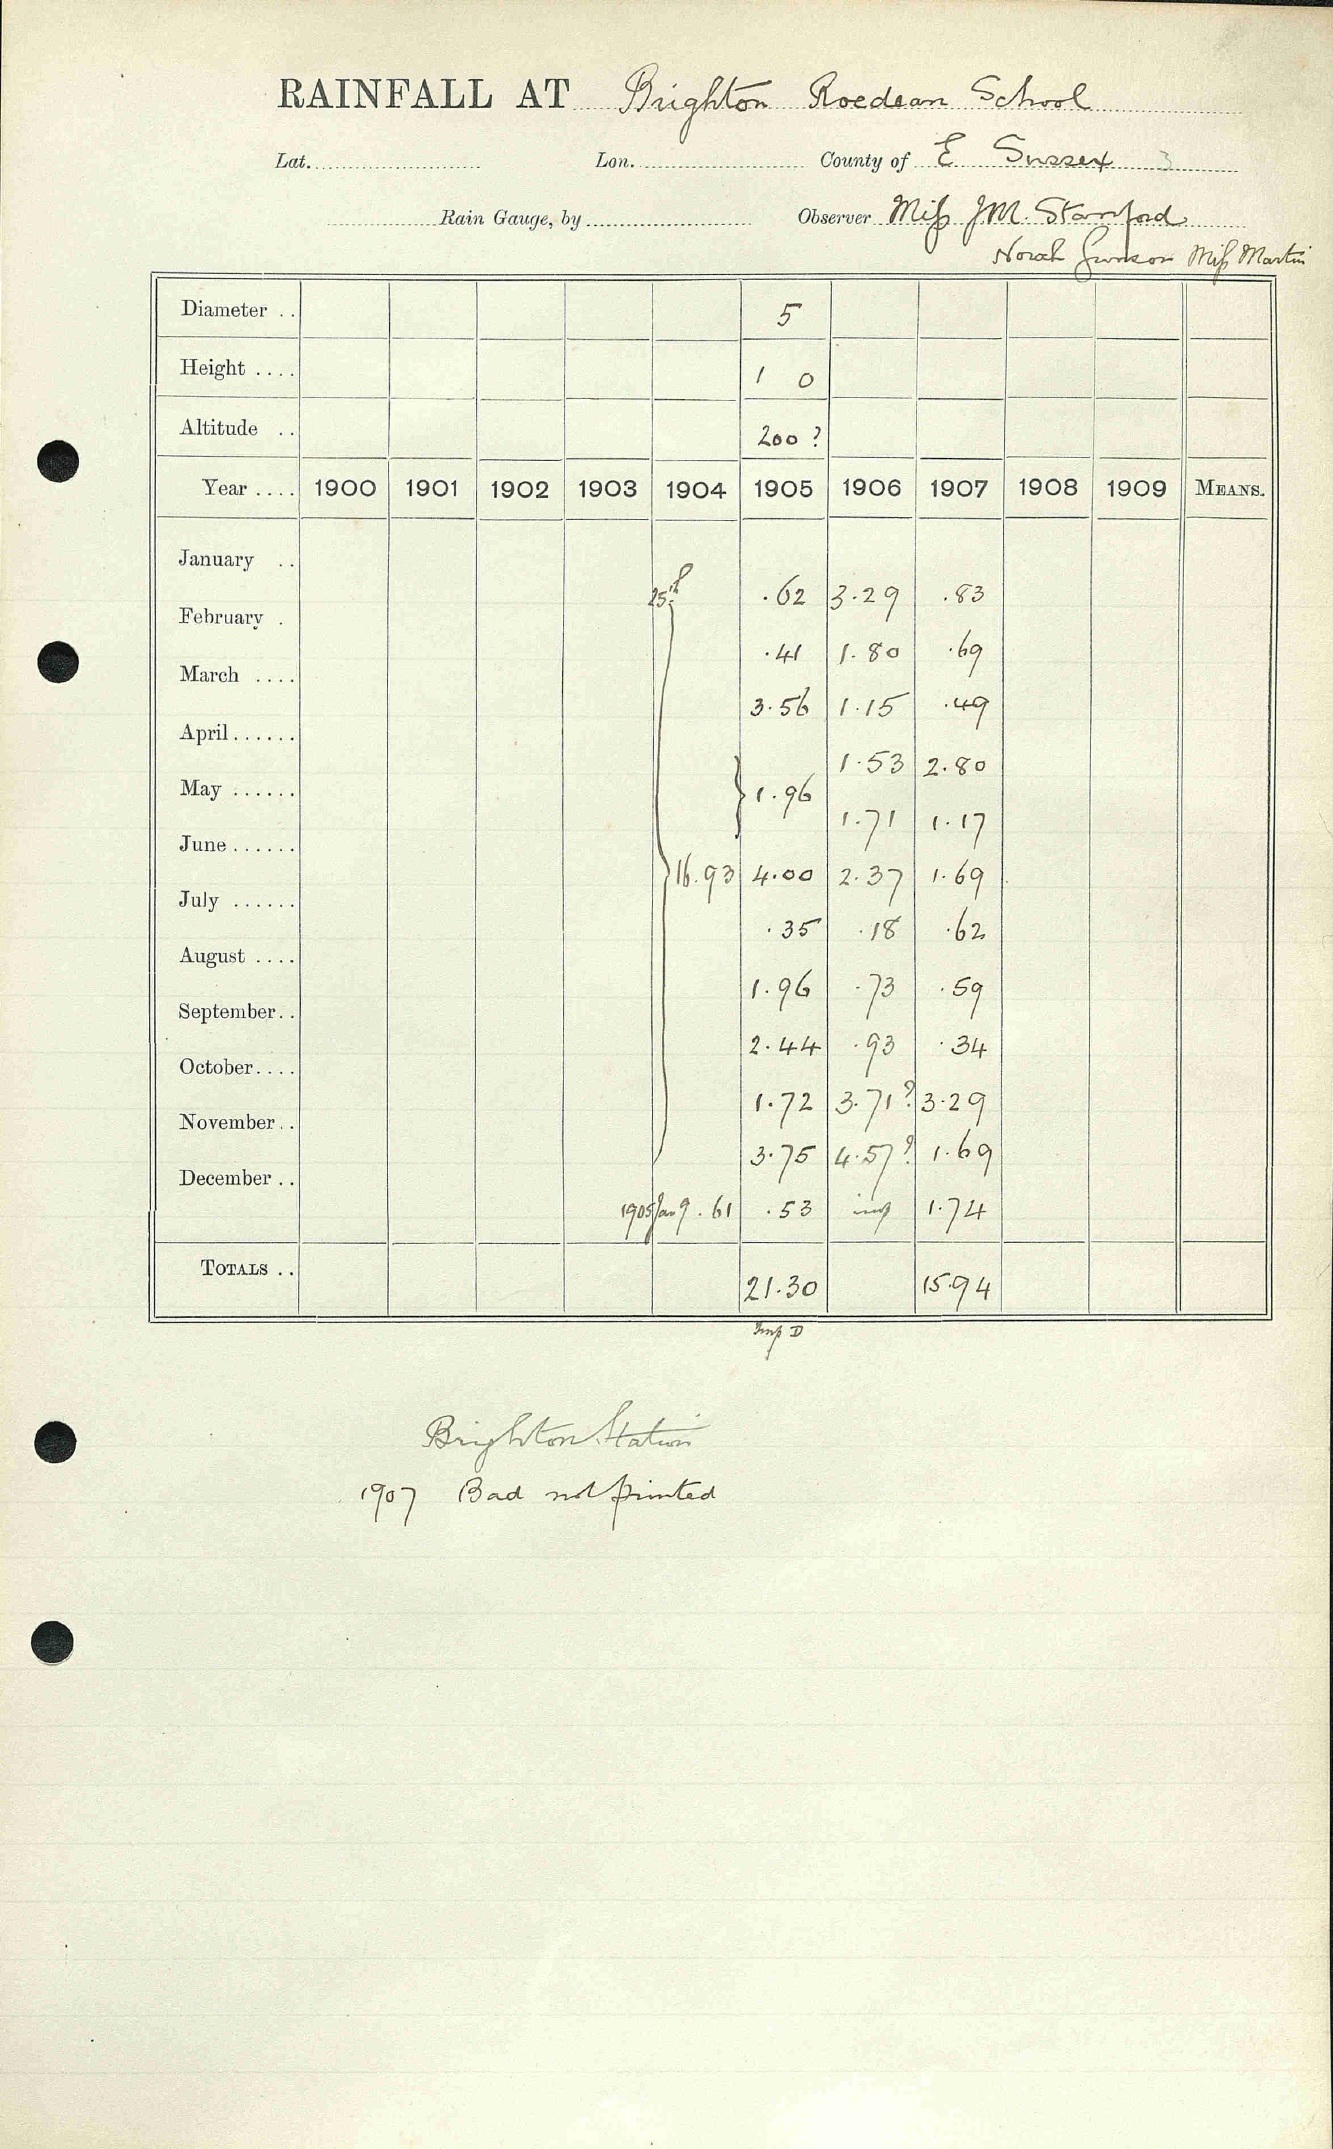 RAINFALL AT Brighton Roedean School
Lat. Lon. County of E Sussex 3
Rain Gauge, by Observer Miss JM. Stanford
Norah Miss Martin
Diameter .. 5
Height .... 1 0
Altitude .. 200 ?
Year .... 1900 1901 1902 1903 1904 1905 1906 1907 1908 1909 MEANS.
January .. 25th .62 3.29 .83
February . .41 1.80 .69
March .... 3.56 1.15 .49
April...... 1.53 2.80
May ...... } 1.96 1.71 1.17
June...... } 16.93 4.00 2.37 1.69
July ...... .35 .18 .62
August .... 1.96 .73 .59
September.. 2.44 .93 .34
October.... 1.72 3.71? 3.29
November.. 3.75 4.57? 1.69
December .. 1905 Jan 9 .61 .53 imp 1.74
TOTALS .. 21.30 15.94
Imp D
Brighton Station
1907 Bad not printed